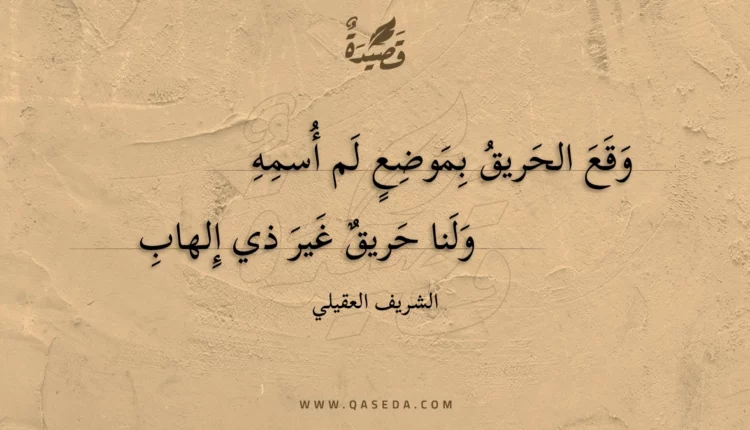 قَصِيْدَةٌ
وَقَعَ الحَريقُ بِمَوضِعٍ لَم أُسمِهِ
وَلَنا حَريقٌ غَيرَ ذي إِلهابِ
الشريف العقيلي
WWW.QASEDA.COM